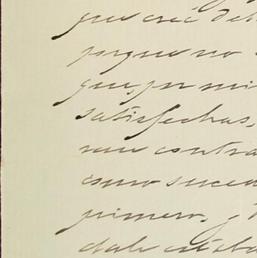 que creí de
porque no
que, por mi
satisfechas,
contra
como suced
primero, y
dale estaba